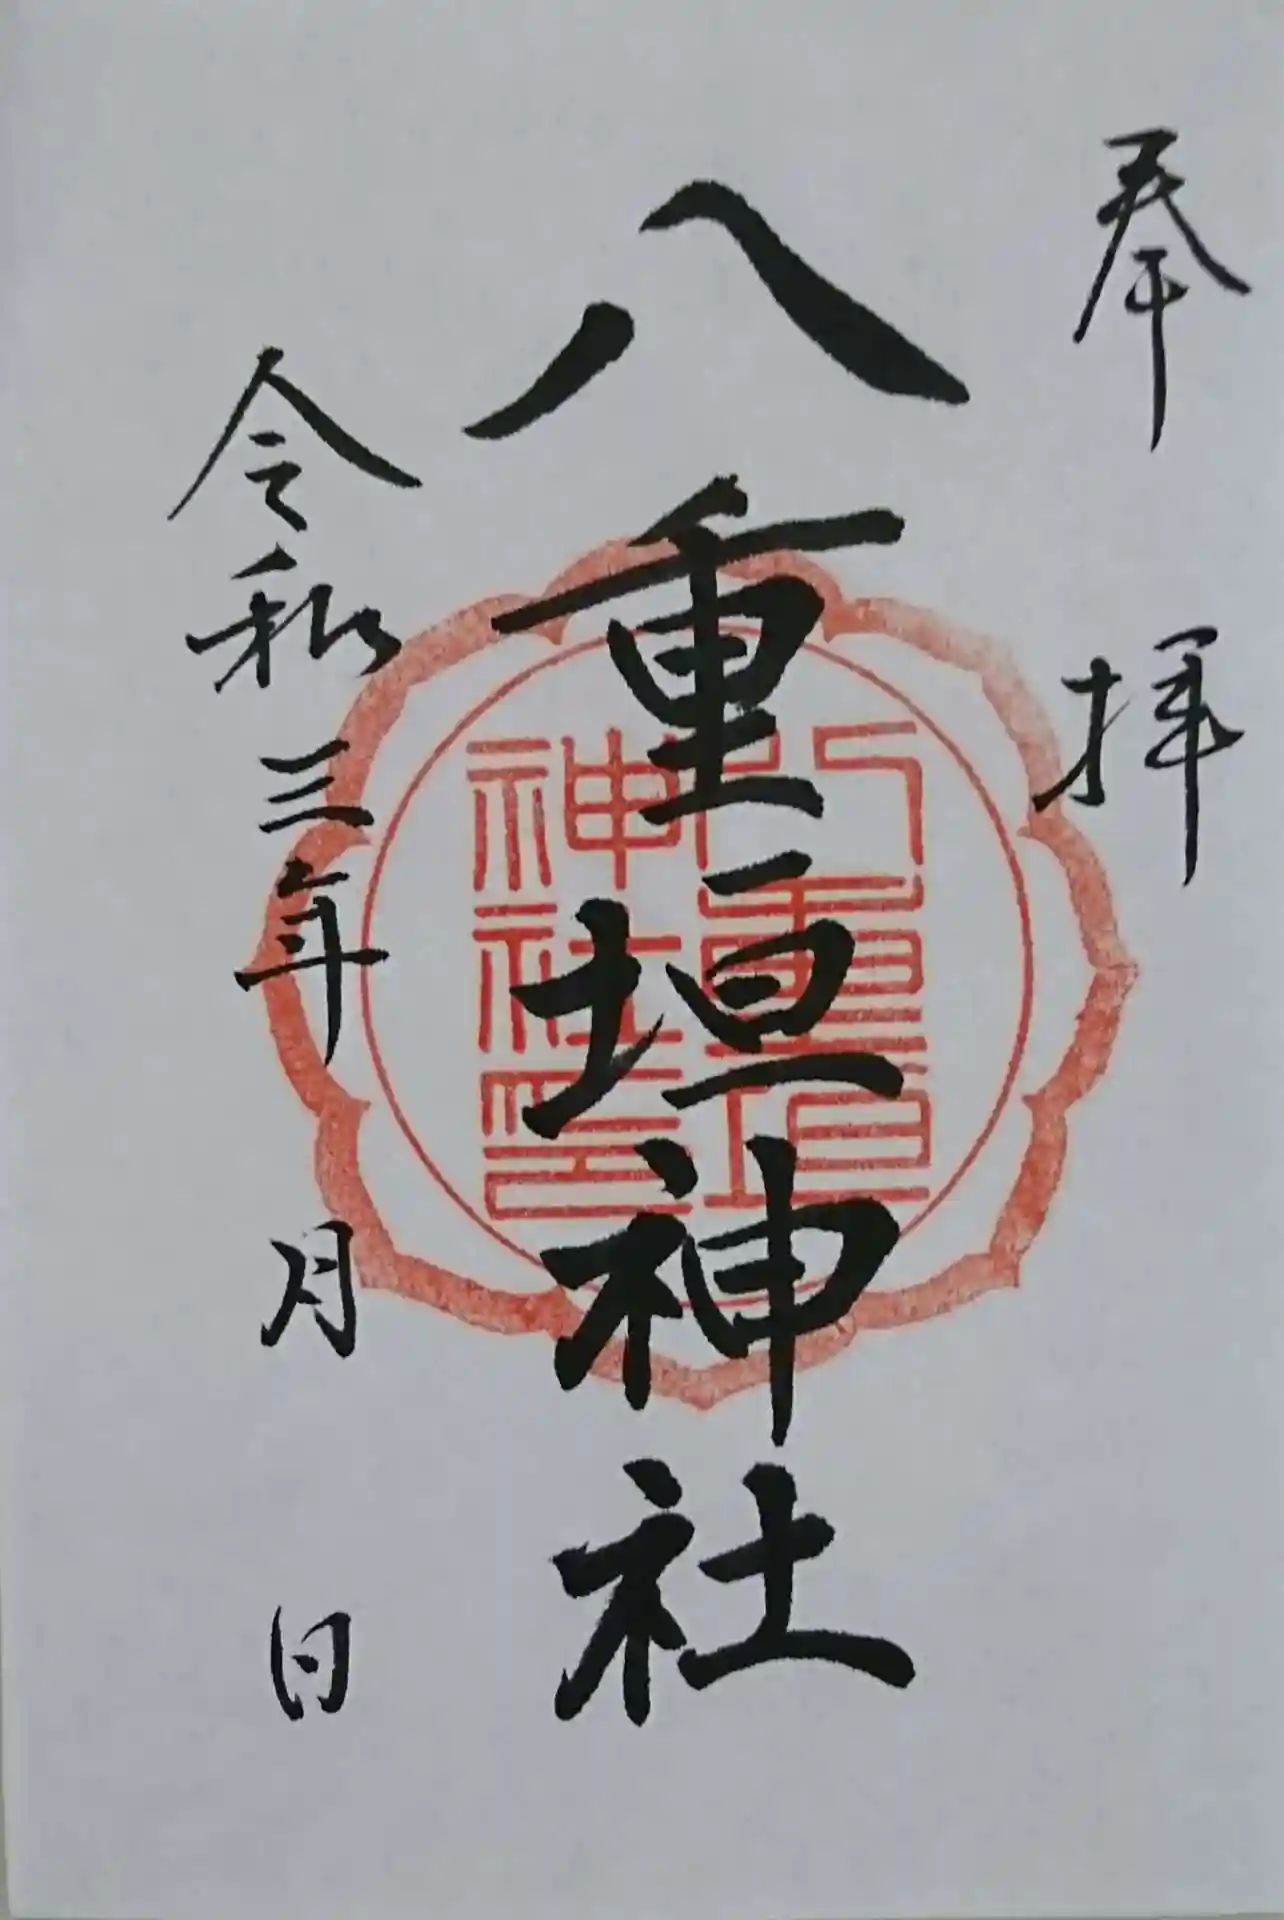 奉拝
八重垣神社
八重垣
神社印
令和三年 月 日